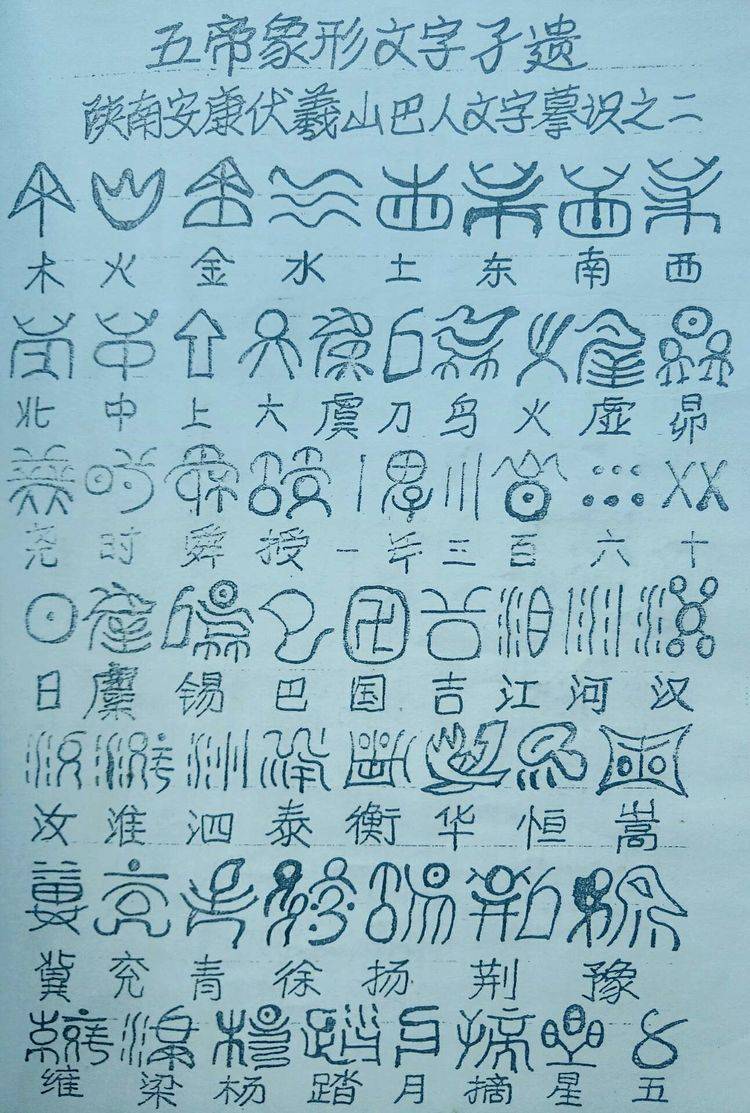 五帝象形文字孑遗
陕南安康伏羲山巴人文字摹识之二
木 火 金 水 土 东 南 西
北 中 上 大 虞 刀 鸟 火 虚 昴
尧 时 舜 授 一 年 三 百 六 十
日 锡 巴 国 吉 江 河 汉
汝 淮 泗 泰 衡 华 恒 嵩
冀 兖 青 徐 扬 荆 豫
雍 梁 杨 踏 月 摘 星 五